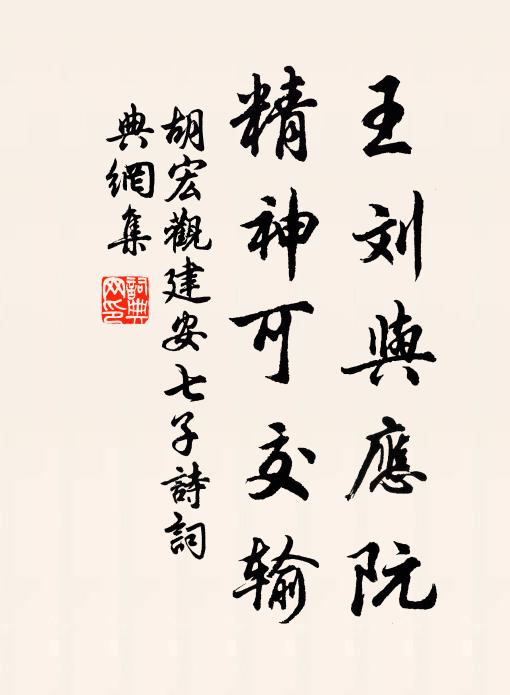 王刘與應阮
精神可交输
胡宏觀建安七子詩詞
典網集
詞典
网印